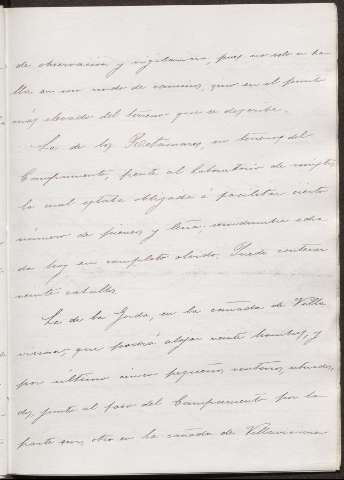 de observacion y vigilancia, pues no solo se ha
lla en un nudo de caminos, sino en el punto
más elevado del terreno que se describe.
La de los Retamares, en terrenos del
Campamento, frente al Laboratorio de mixtos,
la cual estaba obligada á facilitar cierto
número de pienso y leña; servidumbre echa
da hoy en completo olvido. Puede contener
veinte caballos.
La de la Gorda, en la cañada de Villa
viciosa, que podrá alojar veinte hombres, y
por último cinco pequeños ventorros, situados,
dos, junto al foso del Campamento por la
parte sur, otro en la cañada de Villaviciosa